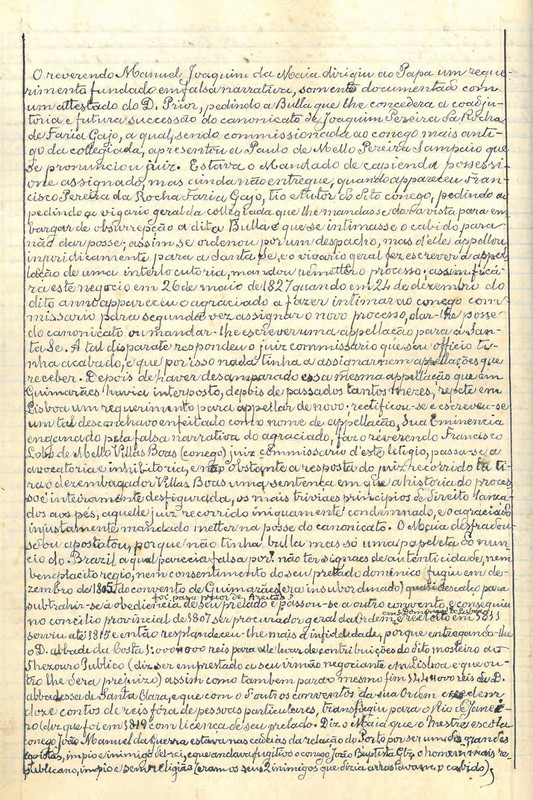 O reverendo Manuel Joaquim da Maia dirigiu ao Papa um reque-
rimento fundado em falsa narrativa, somente documentado com
um attestado do D. Prior, pedindo a Bulla que lhe concedera a coadju-
toria e futura successão do canonicato de Joaquim Pereira da Rocha
de Faria Gajo, a qual, sendo commissionada ao conego mais anti-
go da collegiada, apresentou a Paulo de Mello Pereira Sampaio que
se pronunciou juiz. Estava o Mandado de capienda possessi-
one assignado, mas ainda não entregue, quando appareceu Fran-
cisco Pereira da Rocha Faria Gajo, tio e tutor do dito conego, pedindo ao
pedindo ao vigario geral da collegiada que lhe mandasse dar vista para em
bargar de obsurrepção a dita Bulla e que se intimasse o cabido para
não dar posse; assim se ordenou por um despacho, mas d'elle appellou
injuridicamente para a Santa Sé, e o vigario geral fez escrever a appel-
lação de uma interlocutoria, mandou remetter o processo; assim ficá-
ra este negocio em 26 de maio de 1827 quando em 24 de dezembro do
dito anno appareceu o agraciado a fazer intimar ao conego com-
missario para segunda vez assignar o novo processo, dar-lhe posse
do canonicato ou mandar-lhe escrever uma appellação para a San-
ta Sé. A tal disparate respondeu o juiz commissario que seu officio ti-
nha acabado, e que por isso nada tinha a assignar nem appellações que
receber. Depois de haver desamparado essa mesma appellação que em
Guimarães havia interposto, depois de passados tantos mezes, repete em
Lisboa um requerimento para appellar de novo; rectificou-se e escreveu-se
um tal desconchavo enfeitado com o nome de appellação, Sua Eminencia
enganado pela falsa narrativa do agraciado, faz o reverendo Francisco
de Mello Villas Boas (conego) juiz commissario d'este letigio, passa-se a
avocatoria e inhibitoria, e não obstante a resposta do juiz recorrido
ra o desembargador Villas Boas uma sentença em que a historia do proces-
so é inteiramente desfigurada, os mais triviaes principios de direito lança-
dos aos pés, aquelle juiz recorrido iniquamente condemnado, e o agraciado
injustamente mandado metter na posse do canonicato. O Maia desfradou-
se ou apostatou, porque não tinha bulla mas só uma papeleta do nun-
cio do Brazil a qual parecia falsa por não ter signaes de autenticidade, nem
beneplacito regio, nem consentimento do seu prelado dominico; fugiu em de-
zembro de 1805 do convento de Guimarães (era insubordinado) quasi descalço para
subtrahir-se á obediencia de seu prelado e passou-se a outro convento, e conseguiu
no concilio provincial de 1807 ser procurador geral da Ordem, e reeleito em 1811
serviu até 1815 e então resplandeceu-lhe mais a infidelidade, porque entregando-lhe
o D. abbade da Costa reis para elle livar de contribuições do dito mosteiro ao
Thezouro Publico (diz ser emprestado a seu irmão negociante em Lisboa e que ou-
tro lhe dera prejuizo) assim como tambem para o mesmo fim reis de D.
abbadessa de Santa Clara, e que com outros conventos da sua Ordem excedem
doze contos de reis fóra de pessoas particulares, transfugiu para o Rio de Janei-
ro (diz que foi em 1819 com licença de seu prelado. Diz o Maia que o Mestre escola
conego João Manuel da Guerra, estava nas cadeias da relação do Porto por ser um dos grandes
egoistas, impio e inimigo del-rei, e que andava fugitivo o conego João Baptista o homem mais re-
publicano, impio e sem religião (eram os seus 2 inimigos que dizia o cabido),